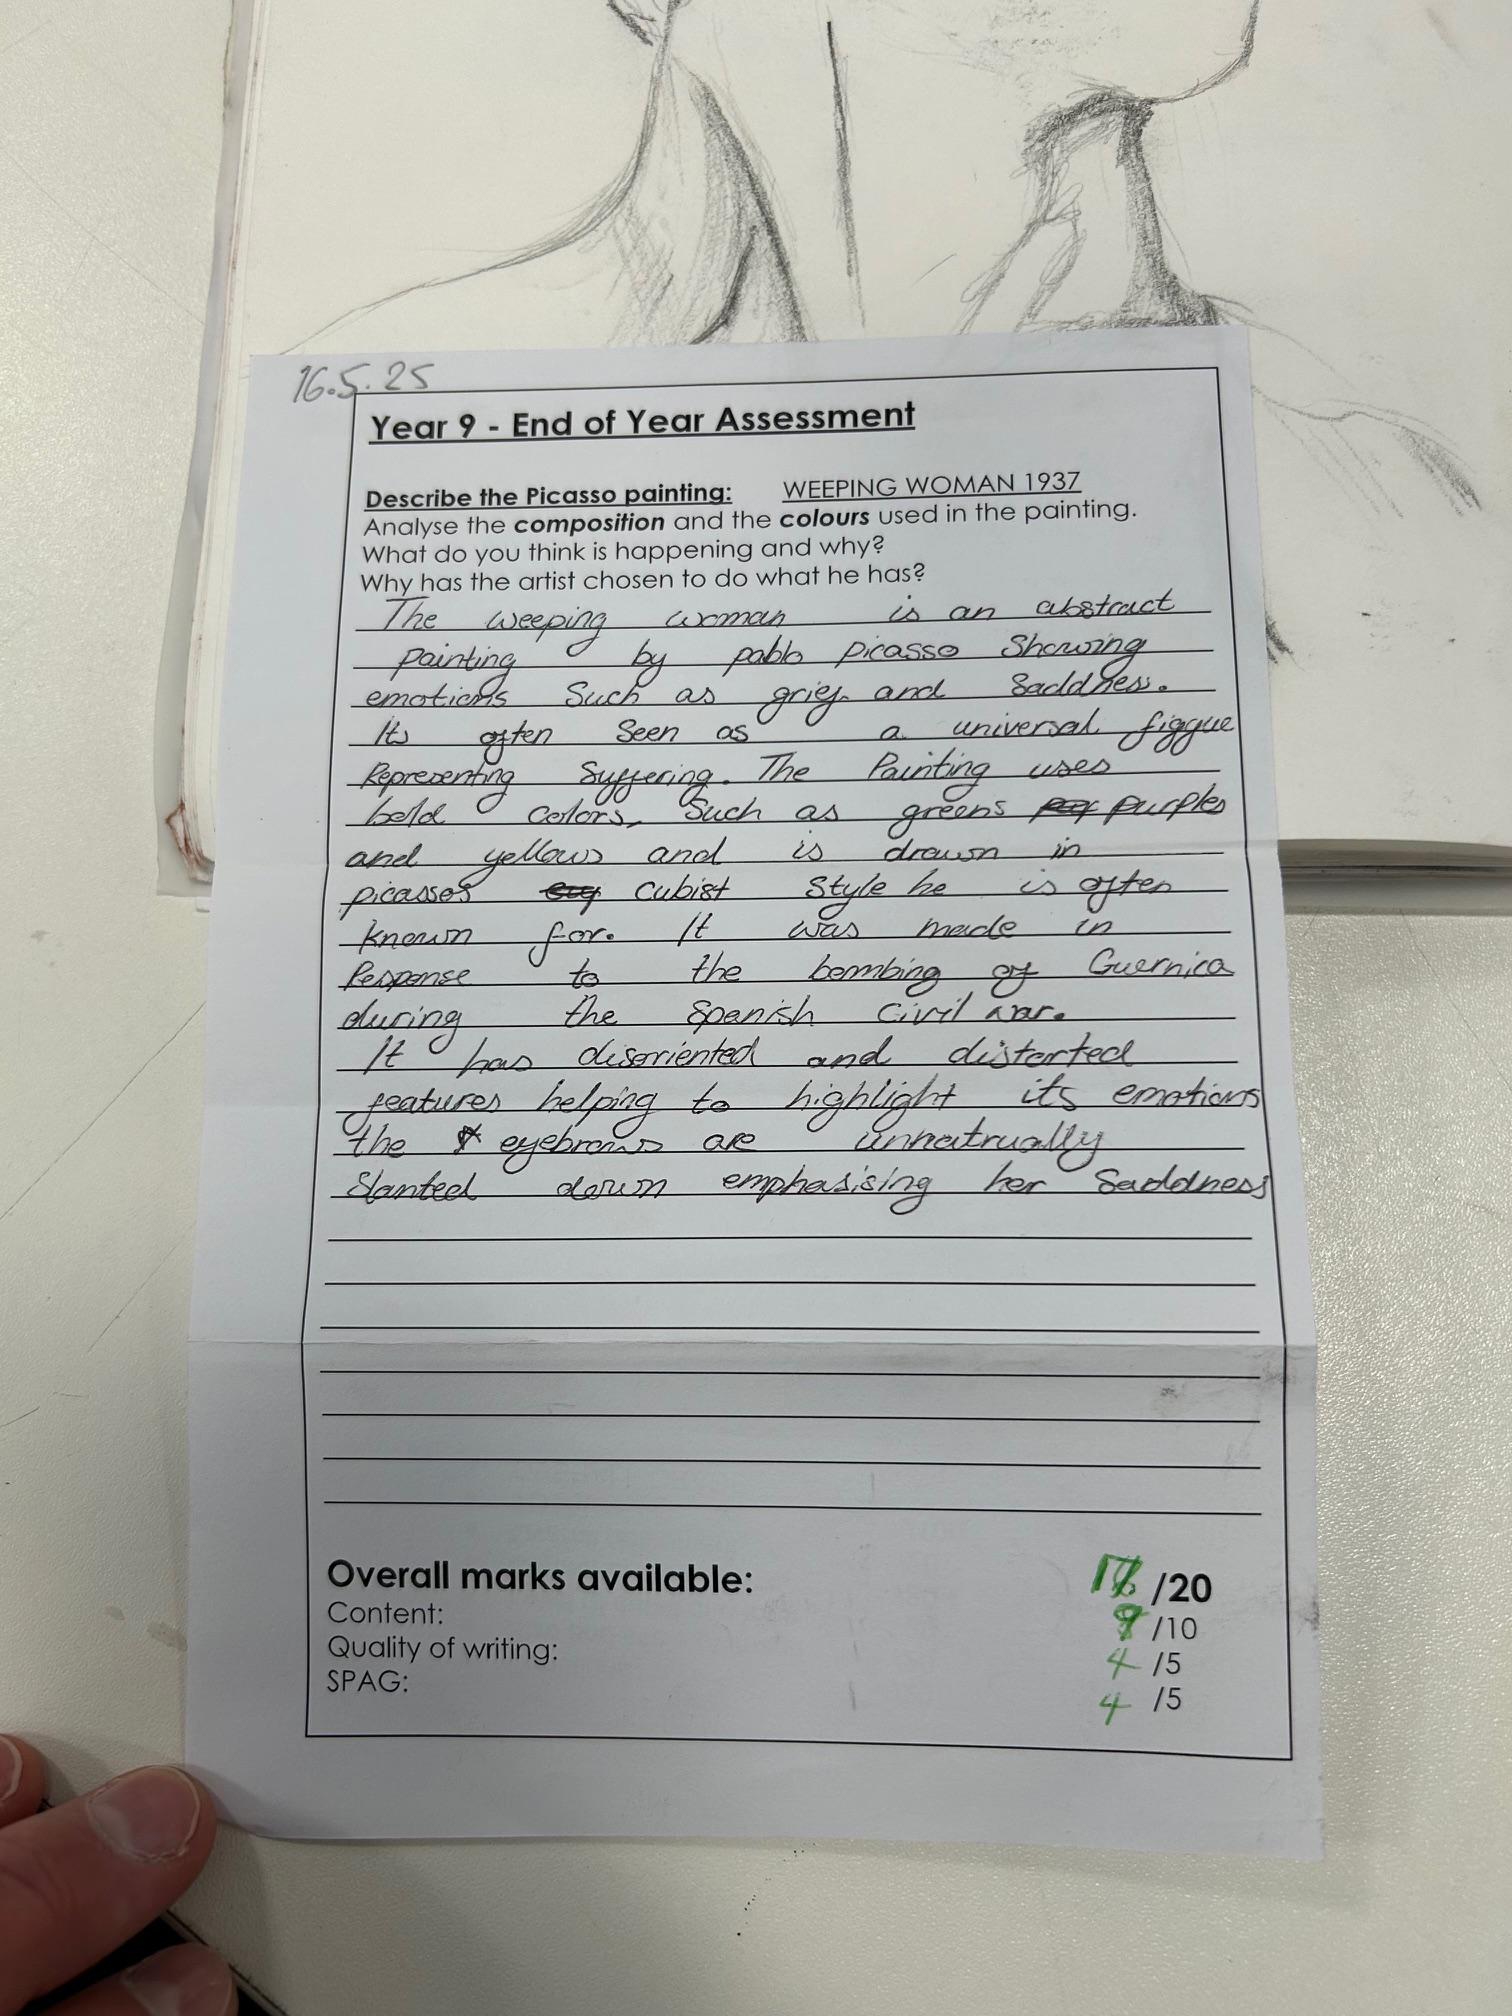 16.5.25
Year 9 - End of Year Assessment
Describe the Picasso painting: WEEPING WOMAN 1937
Analyse the composition and the colours used in the painting.
What do you think is happening and why?
Why has the artist chosen to do what he has?
The weeping woman is an abstract
painting by pablo picasso Showing
emotions Such as grief and Saddness.
Its often Seen as a universal figgue
Representing Suffering. The Painting uses
bold colors, Such as greens purples
and yellows and is drawn in
picassos cubist Style he is often
known for. It was made in
Response to the bombing of Guernica
during the Spanish Civil war.
It has disoriented and distorted
features helping to highlight its emotions
the eyebrows are unnatrually
Slanted down emphasising her Saddness
Overall marks available: /20
Content: /10
Quality of writing: 4 /5
SPAG: 4 /5